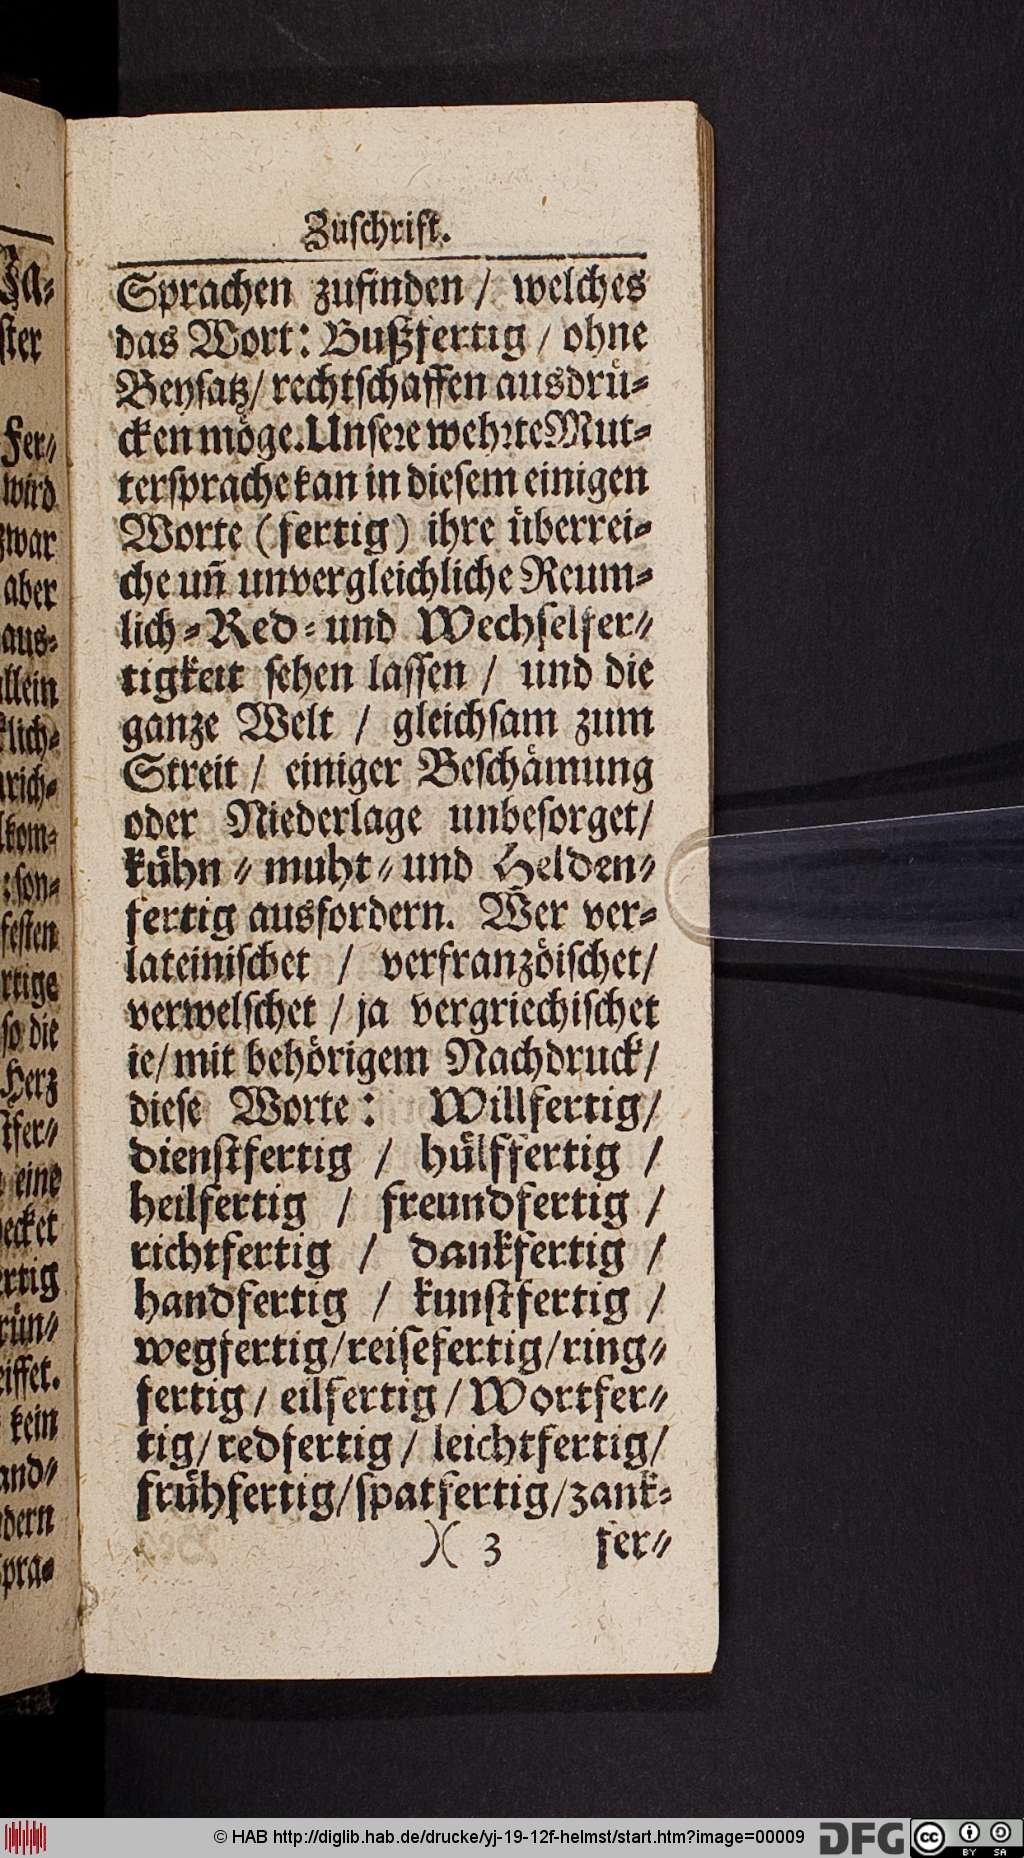 Zuschrift.
Sprachen zufinden / welches
das Wort: Bußfertig / ohne
Beysatz / rechtschaffen ausdrü-
cken möge. Unsere wehrte Mut-
tersprache kan in diesem einigen
Worte (fertig) ihre überrei-
che uñ unvergleichliche Reum-
lich- Red- und Wechselfer-
tigkeit sehen lassen / und die
ganze Welt / gleichsam zum
Streit / einiger Beschämung
oder Niederlage unbesorget /
kühn- muht- und Helden-
fertig ausfordern. Wer ver-
lateinischet / verfranzöischet /
verwelschet / ja vergriechischet
ie / mit behörigem Nachdruck /
diese Worte: Willfertig /
dienstfertig / hülffertig /
heilfertig / freundfertig /
richtfertig / dankfertig /
handfertig / kunstfertig /
wegfertig / reisefertig / ring-
fertig / eilfertig / Wortfer-
tig / redfertig / leichtfertig /
frühfertig / spatfertig / zank-
)( 3 fer-
Fer-
wird
zwar
aber
aus-
allein
lich-
rich-
kom-
son-
festen
rtige
so die
Herz
tfer-
eine
ecket
ertig
rün-
eiffet.
kein
and-
dern
Spra-
© HAB http://diglib.hab.de/drucke/yj-19-12f-helmst/start.htm?image=00009
DFG
cc
BY SA